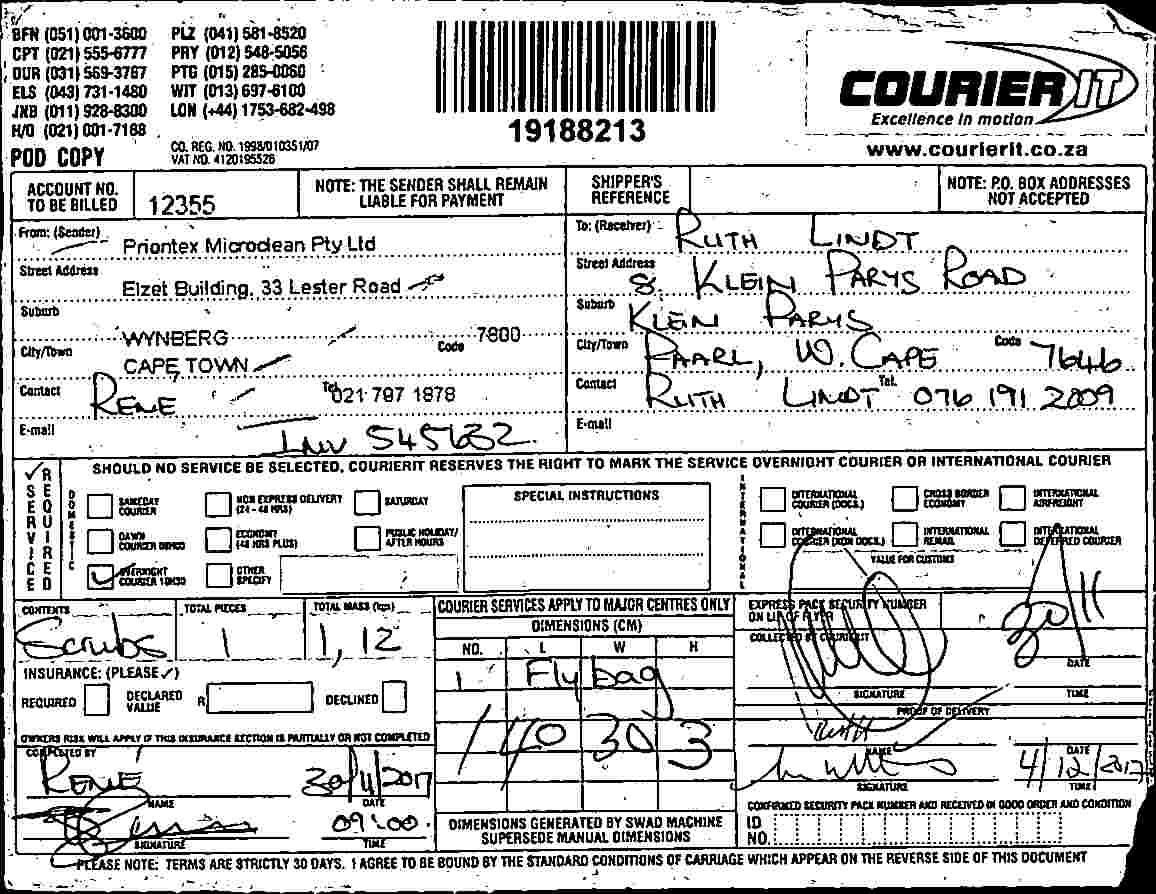 BFN (051) 001-3600 PLZ (041) 581-8520
CPT (021) 555-6777 PRY (012) 548-5056
DUR (031) 569-3767 PTG (015) 285-0060
ELS (043) 731-1480 WIT (013) 697-6100
JNB (011) 928-8300 LON (+44) 1753-682-498
H/O (021) 001-7168
POD COPY
CO. REG. NO. 1998/010351/07
VAT NO. 4120195526
19188213
COURIER IT
Excellence in motion
www.courierit.co.za
ACCOUNT NO. TO BE BILLED 12355
NOTE: THE SENDER SHALL REMAIN LIABLE FOR PAYMENT
SHIPPER'S REFERENCE
NOTE: P.O. BOX ADDRESSES NOT ACCEPTED
From: (Sender) Priontex Microclean Pty Ltd
Street Address Elzet Building, 33 Lester Road
Suburb WYNBERG
Code 7800
City/Town CAPE TOWN
Contact RENE Tel. 021 797 1878
E-mail INV 545632
To: (Receiver) RUTH LINDT
Street Address 8. KLEIN PARYS ROAD
Suburb KLEIN PARYS
City/Town PAARL, W. CAPE Code 7646
Contact RUTH LINDT Tel. 076 191 2009
E-mail
SERVICE REQUIRED
SHOULD NO SERVICE BE SELECTED, COURIERIT RESERVES THE RIGHT TO MARK THE SERVICE OVERNIGHT COURIER OR INTERNATIONAL COURIER
DOMESTIC
SAMEDAY COURIER
NON EXPRESS DELIVERY (24 - 48 HRS)
SATURDAY
DAWN COURIER
ECONOMY (48 HRS PLUS)
PUBLIC HOLIDAY/ AFTER HOURS
OVERNIGHT COURIER 10H30
OTHER SPECIFY
SPECIAL INSTRUCTIONS
INTERNATIONAL
INTERNATIONAL COURIER (DOCS.)
CROSS BORDER ECONOMY
INTERNATIONAL AIRFREIGHT
INTERNATIONAL COURIER (NON DOCS.)
INTERNATIONAL REMAIL
INTERNATIONAL DEFERRED COURIER
VALUE FOR CUSTOMS
CONTENTS Scrubs
TOTAL PIECES 1
TOTAL MASS (kgs) 1,12
INSURANCE: (PLEASE ✓)
REQUIRED
DECLARED VALUE R
DECLINED
OWNERS RISK WILL APPLY IF THIS INSURANCE SECTION IS PARTIALLY OR NOT COMPLETED
COMPLETED BY
RENE 30/11/2017
NAME DATE
09:00
SIGNATURE TIME
COURIER SERVICES APPLY TO MAJOR CENTRES ONLY
DIMENSIONS (CM)
NO. L W H
1 Flybag
1 40 30 3
DIMENSIONS GENERATED BY SWAD MACHINE SUPERSEDE MANUAL DIMENSIONS
EXPRESS PACK SECURITY NUMBER ON LIP OF FLYER
COLLECTED BY COURIERIT
30/11
DATE
SIGNATURE TIME
PROOF OF DELIVERY
NAME DATE
4/12/2017
SIGNATURE TIME
CONFIRMED SECURITY PACK NUMBER AND RECEIVED IN GOOD ORDER AND CONDITION
ID NO.
PLEASE NOTE: TERMS ARE STRICTLY 30 DAYS. I AGREE TO BE BOUND BY THE STANDARD CONDITIONS OF CARRIAGE WHICH APPEAR ON THE REVERSE SIDE OF THIS DOCUMENT